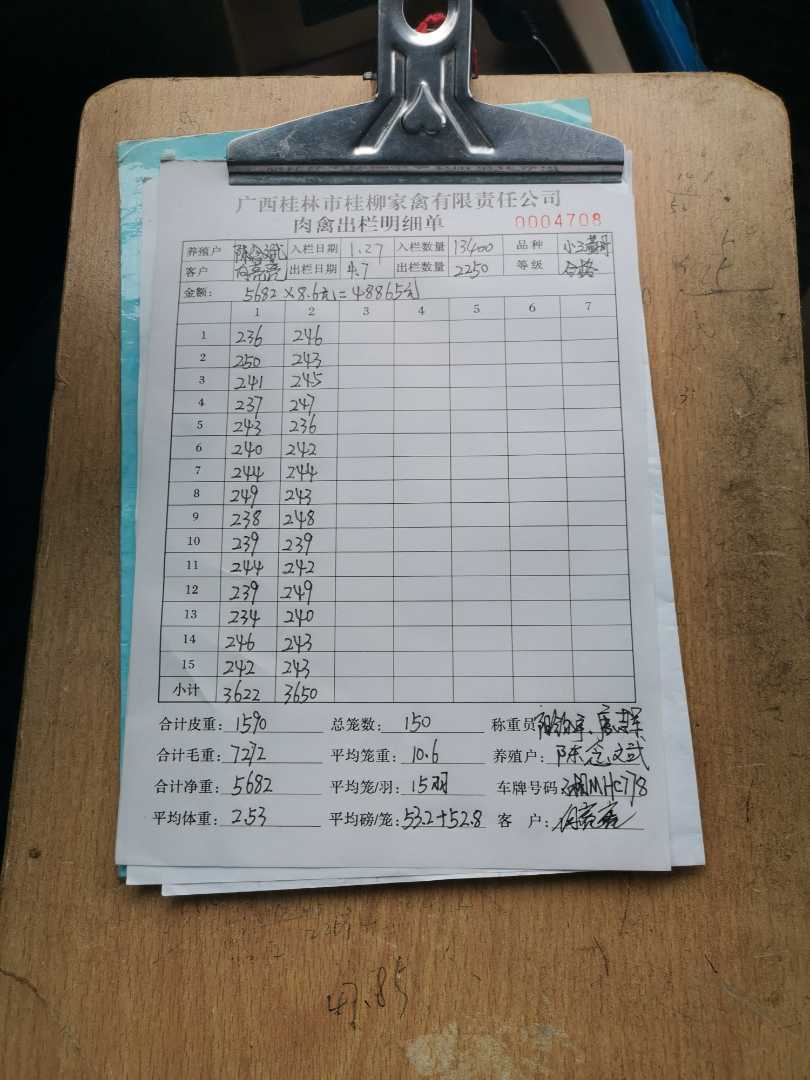 广西桂林市桂柳家禽有限责任公司
肉禽出栏明细单 0004708
养殖户 陈念武 入栏日期 1.27 入栏数量 13400 品种
客户 出栏日期 4.7 出栏数量 2250 等级 合格
金额: 5682×8.6元=48865元
1 2 3 4 5 6 7
1 236 246
2 250 243
3 241 245
4 237 247
5 243 236
6 240 242
7 244 244
8 249 243
9 238 248
10 239 239
11 244 242
12 239 249
13 234 240
14 246 243
15 242 243
小计 3622 3650
合计皮重: 1590 总笼数: 150 称重员
合计毛重: 7272 平均笼重: 10.6 养殖户: 陈念武
合计净重: 5682 平均笼/羽: 15羽 车牌号码: 湘MHC778
平均体重: 2.53 平均磅/笼: 53.2+52.8 客 户:
47.85